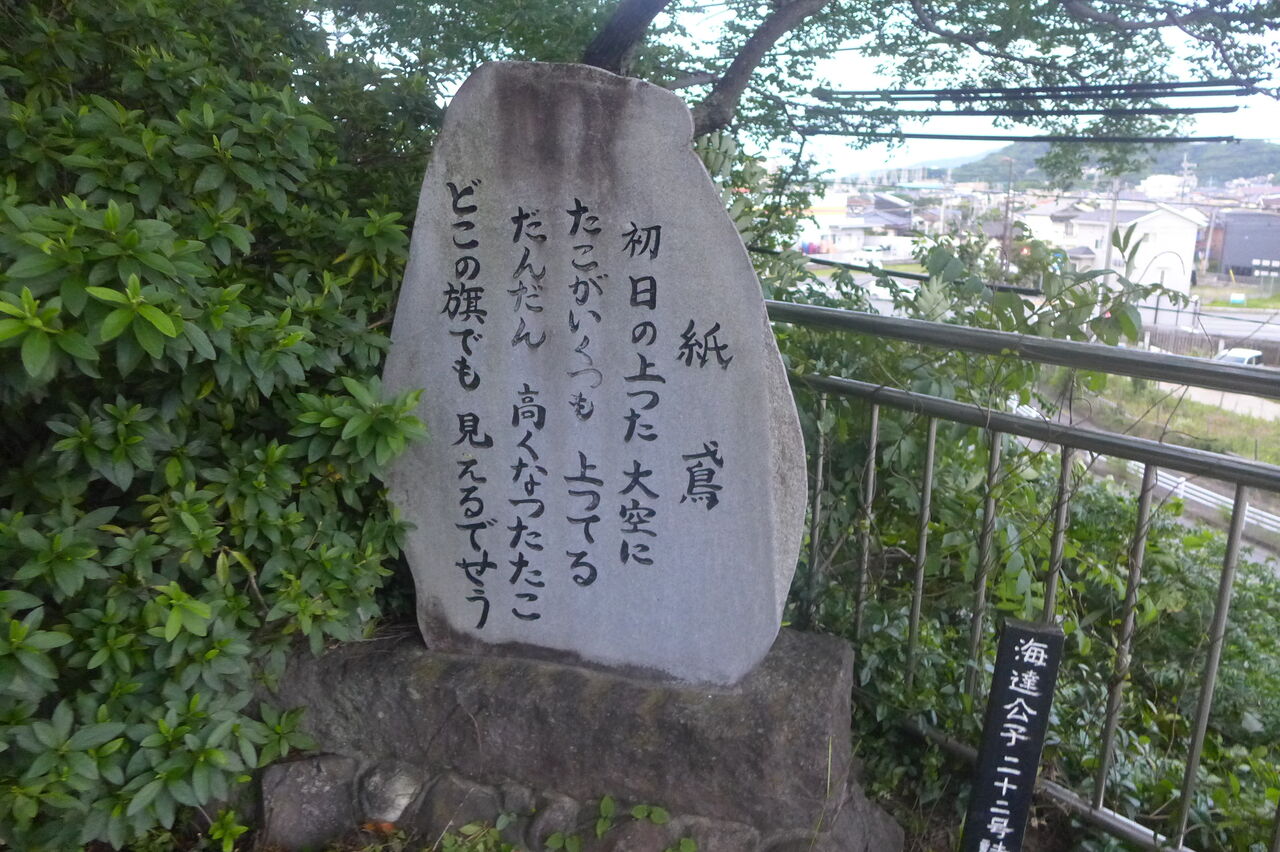 紙鳶
初日の上つた 大空に
たこがいくつも 上つてる
だんだん 高くなつたたこ
どこの旗でも 見えるでせう
海達公子 二十二号